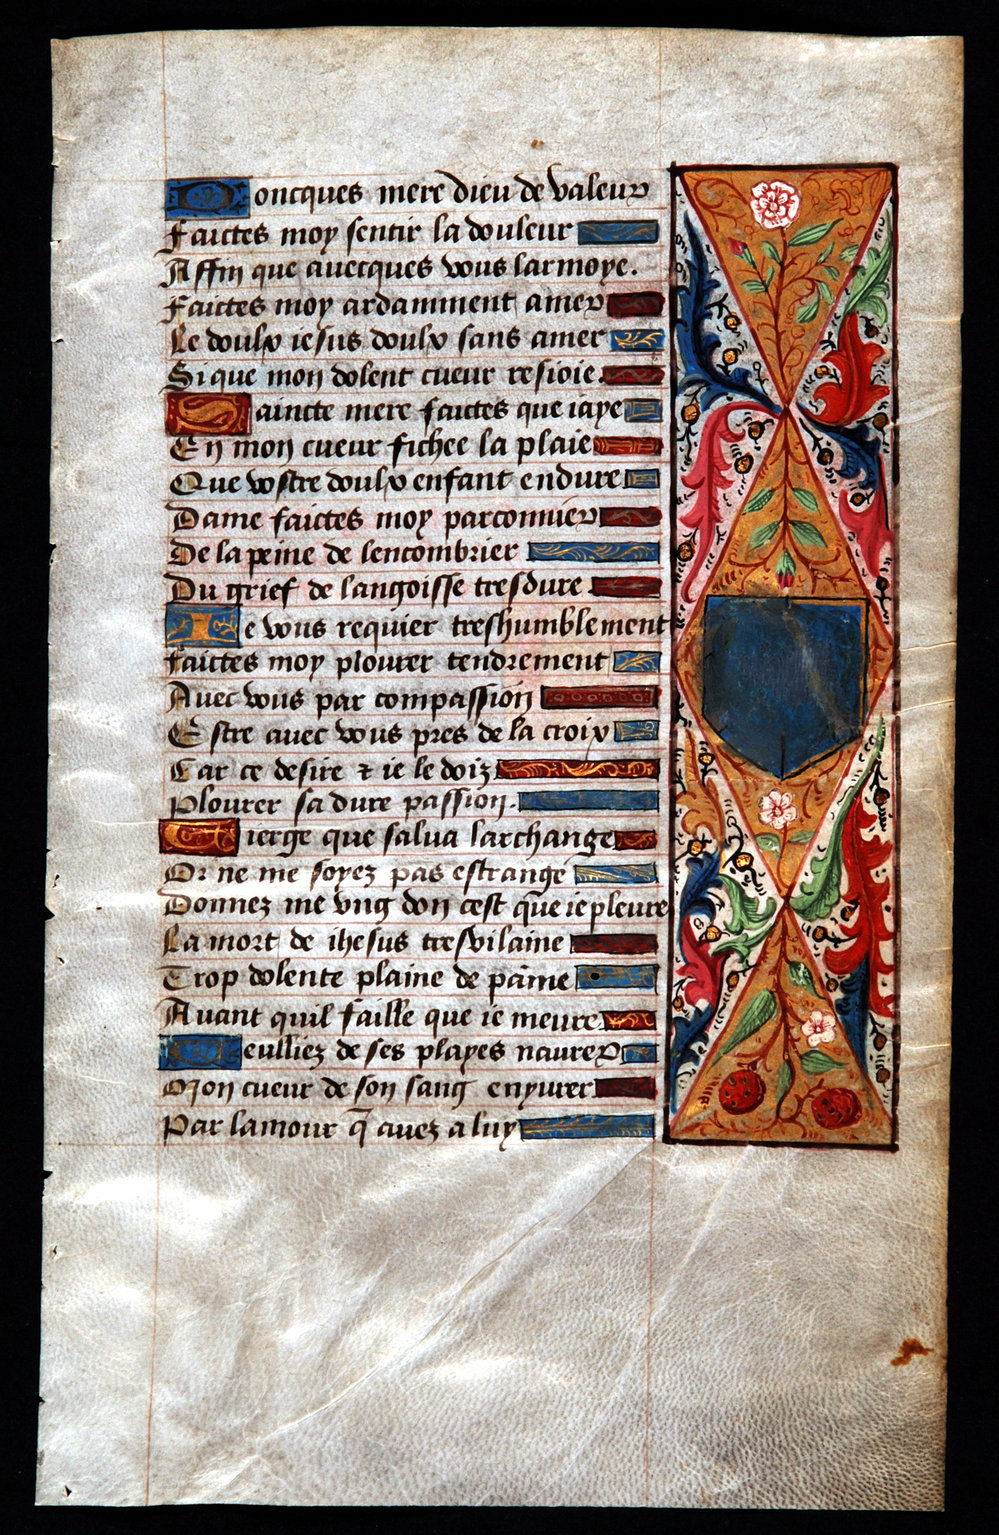 Doncques mere dieu de valeur
Faictes moy sentir la douleur
Affin que avecques vous larmoye.
Faictes moy ardamment amer
Le doulx iesus doulx sans amer
Si que mon dolent cueur resioie.
Saincte mere faictes que iaye
En mon cueur fichee la plaie
Que vostre doulx enfant endure
Dame faictes moy parconnier
De la peine de lencombrier
Du grief de langoisse tresdure.
Je vous requier treshumblement
Faictes moy plourer tendrement
Avec vous par compassion
Estre avec vous pres de la croix
Car ce desire ⁊ ie le doiz
Plourer sa dure passion.
Vierge que salua larchange
Or ne me soyez pas estrange
Donnez me vng don cest que ie pleure
La mort de ihesus tresvilaine
Trop dolente plaine de paine
Auant quil faille que ie meure.
Veulliez de ses playes naurer
Mon cueur de son sang enyurer
Par lamour q̄ auez a luy